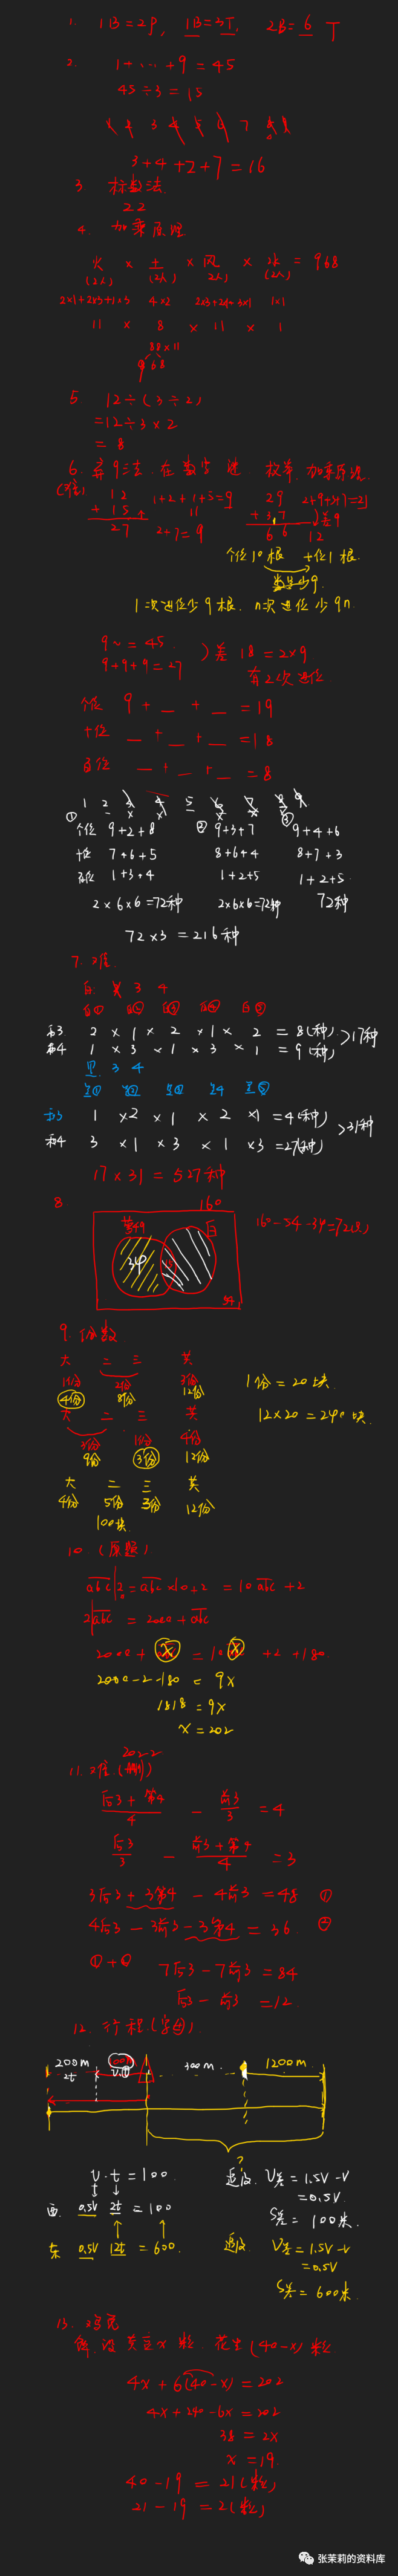 1. 1B=2P, 1B=3T, 2B=6T
2. 1+…+9=45
45÷3=15
3+4+2+7=16
3 标数法
22
4. 加乘原理
火 × 土 × 风 × 水 = 968
(2人) (2人) 2人) (2人)
2×1+2×3+1×3 4×2 2×3+2×1+3×1 1×1
11 × 8 × 11 × 1
88×11
968
5 12÷(3÷2)
=12÷3×2
=8
6. 弃9法. 在数字谜 枚举. 加乘原理.
(难)
12 1+2+1+5=9 29 2+9+3+7=21
+15 11 +3,7 )差9
27 2+7=9 66 12
个位10根 十位1根.
1次进位少9根. n次进位少9n.
=45.
9+9+9=27
)差18=2×9
有2次进位
个位 9+_+_=19
十位 _+_+_=18
百位 _+_+_=8
1 2 3 4 5 6 7 8 9
① 个位 9+2+8 ② 9+3+7 ③ 9+4+6
十位 7+6+5 8+6+4 8+7+3
百位 1+3+4 1+2+5 1+2+5
2×6×6=72种 2×6×6=72种 72种
72×3=216种
7. 难.
和3 2×1×2×1×2=8(种)
和4 1×3×1×3×1=9(种) >17种
黑 3 4
和3 1×2×1×2×1=4(种)
和4 3×1×3×1×3=27(种) >31种
17×31=527种
8 160
白
54
9. 份数
大 二 三 英
1份 2份 3份
4份 8份 12份
1份=20块
大 二 三 英
3份 1份 4份
9份 3份 12份
12×20=240块.
大 二 三 英
4份 5份 3份 12份
100块
10 (原题)
abc2=abc×10+2=10abc+2
2abc=2000+abc
2000+x=10x+2+180.
2000-2-180=9x
1818=9x
x=202
2022
11. 难.
后3+第4/4 - 前3/3 =4
后3/3 - 前3+第4/4 =3
3后3+3第4-4前3=48 ①
4后3-3前3-3第4=36. ②
①+② 7后3-7前3=84
后3-前3=12.
12. 行程(字母)
200m 300m. 1200m
2t
?
v·t=100. 追及. V差=1.5V-V
=0.5V
西. 0.5V 2t=100 S差=100米.
东 0.5V 12t=600. 追及 V差=1.5V-V
=0.5V
S差=600米.
13. 鸡兔
解:设黄豆x粒. 花生(40-x)粒
4x+6(40-x)=202
4x+240-6x=202
38=2x
x=19.
40-19=21(粒)
21-19=2(粒)
张茉莉的资料库